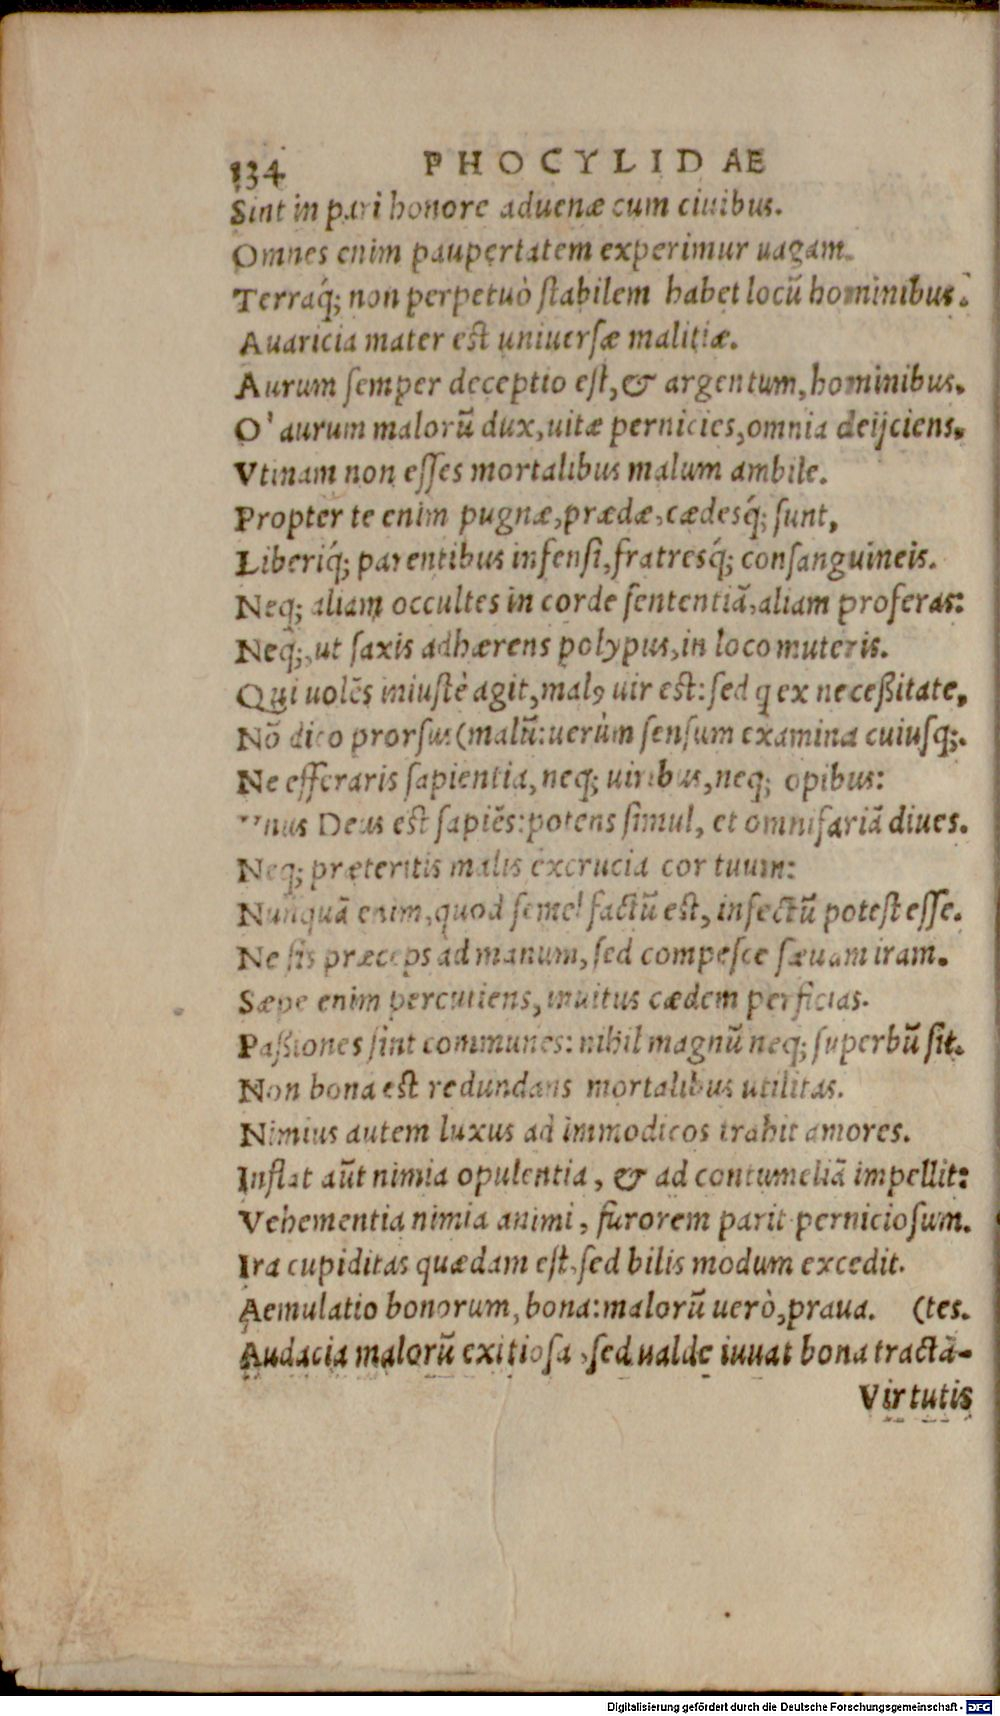 134 PHOCYLIDAE
Sint in pari honore aduenæ cum ciuibus.
Omnes enim paupertatem experimur uagam.
Terraq́; non perpetuò ſtabilem habet locū hominibus.
Auaricia mater est uniuerſæ malitiæ.
Aurum ſemper deceptio eſt, & argentum, hominibus.
O' aurum malorū dux, uitæ pernicies, omnia deijciens,
Vtinam non eſſes mortalibus malum ambile.
Propter te enim pugnæ, prædæ, cædesq́; ſunt,
Liberiq́; parentibus infenſi, fratresq́; conſanguineis.
Neq; aliam occultes in corde ſententiā, aliam proferas:
Neq;, ut ſaxis adhærens polypus, in loco muteris.
Qui uolēs iniuſtè agit, malꝯ uir est: ſed q ex neceßitate,
Nō dico prorſus (malū: uerùm ſenſum examina cuiusq;.
Ne efferaris ſapientia, neq; uiribus, neq; opibus:
Vnus Deus est ſapiēs: potens ſimul, et omnifariā diues.
Neq; præteritis malis excrucia cor tuum:
Nunquā enim, quod ſemel factū est, infectū poteſt eſſe.
Ne ſis præceps ad manum, ſed compeſce ſæuam iram.
Sæpe enim percutiens, inuitus cædem perficias.
Paßiones ſint communes: nihil magnū neq; ſuperbū ſit.
Non bona est redundans mortalibus utilitas.
Nimius autem luxus ad immodicos trahit amores.
Inflat aūt nimia opulentia, & ad contumeliā impellit:
Vehementia nimia animi, furorem parit pernicioſum.
Ira cupiditas quædam eſt, ſed bilis modum excedit.
Aemulatio bonorum, bona: malorū uerò, praua. (tes.
Audacia malorū exitioſa, ſed ualde iuuat bona tractā-
Virtutis
Digitalisierung gefördert durch die Deutsche Forschungsgemeinschaft - DFG